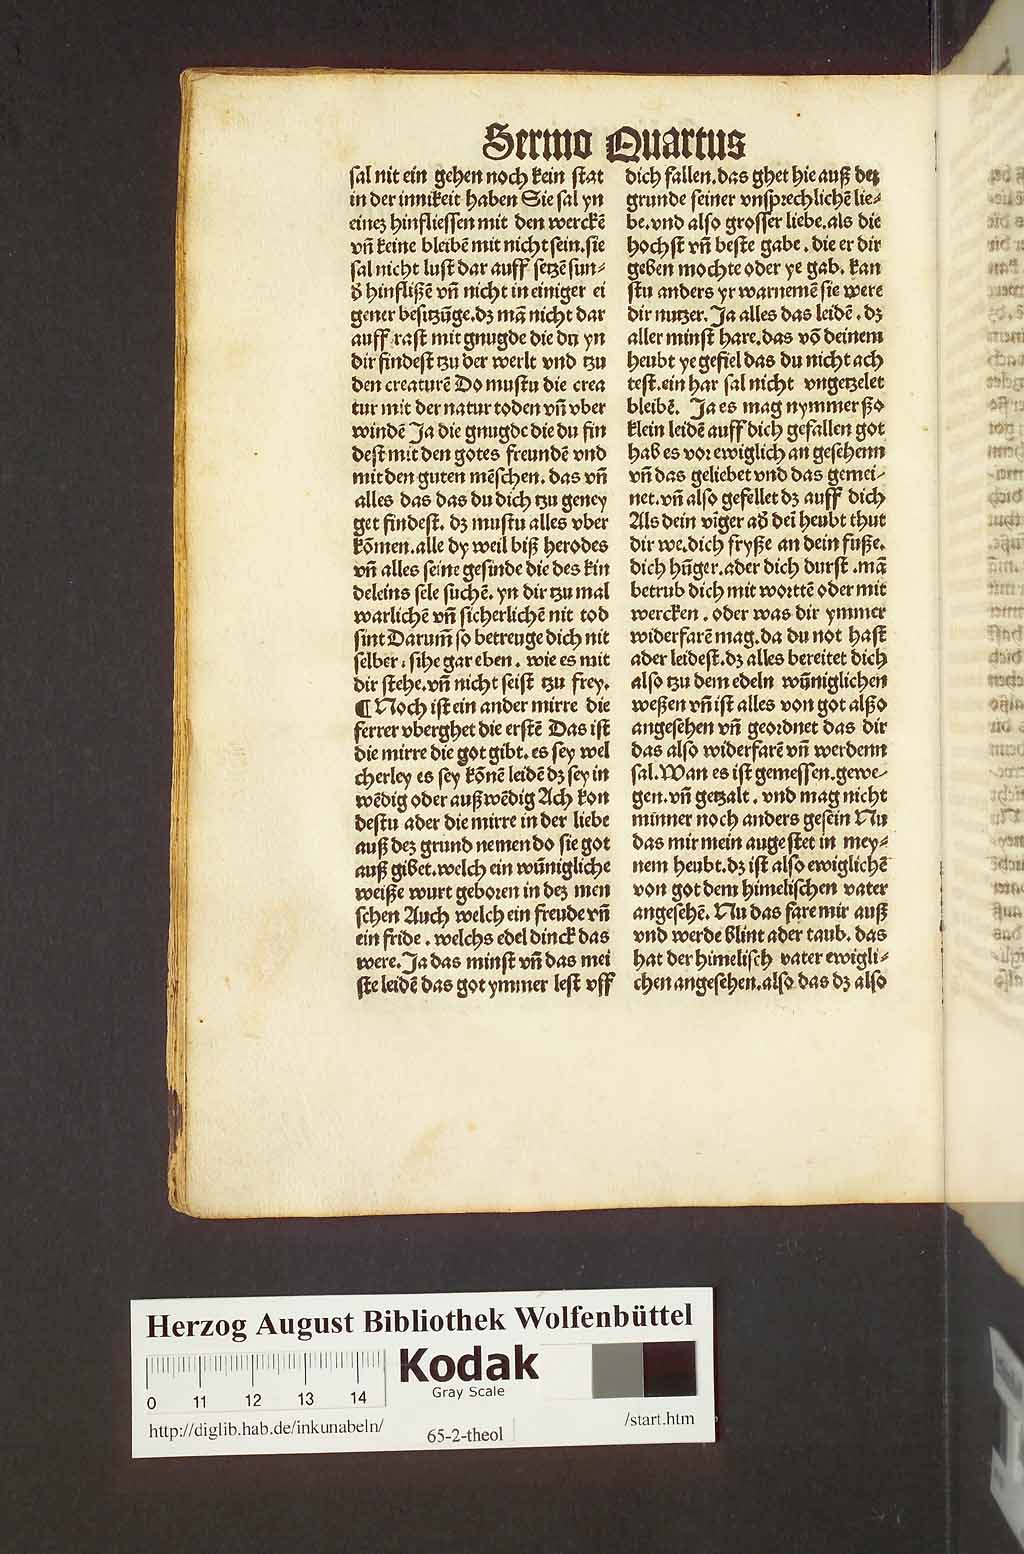 Sermo Quartus
sal nit ein gehen noch kein stat
in der innikeit haben Sie sal yn
eineꝫ hinfliessen mit den werckē
vñ keine bleibē mit nicht sein. sie
sal nicht lust dar auff setzē sun⸗
ð hinflißē vñ nicht in einiger ei
gener besitzūge. dꝫ mā nicht dar
auff rast mit gnugde die du yn
dir findest tzu der werlt vnd tzu
den creaturē Do mustu die crea
tur mit der natur toden vñ vber
windē Ja die gnugde die du fin
dest mit den gotes freundē vnd
mit den guten mēschen. das vñ
alles das das du dich tzu geney
get findest. dꝫ mustu alles vber
kōmen. alle dy weil biß herodes
vñ alles seine gesinde die des kin
deleins sele suchē. yn dir tzu mal
warlichē vñ sicherlichē nit tod
sint Darum̄ so betreuge dich nit
selber: sihe gar eben. wie es mit
dir stehe. vñ nicht seist tzu frey.
¶ Noch ist ein ander mirre die
ferrer vberghet die erstē Das ist
die mirre die got gibt. es sey wel
cherley es sey kōnē leidē dꝫ sey in
wēdig oder außwēdig Ach kon
destu ader die mirre in der liebe
auß deꝫ grund nemen do sie got
auß gibet. welch ein wūnigliche
weiße wurt geboren in deꝫ men
schen Auch welch ein freude vñ
ein fride. welchs edel dinck das
were. Ja das minst vñ das mei
ste leidē das got ymmer lest vff
dich fallen. das ghet hie auß deꝫ
grunde seiner vnsprechlichē lie⸗
be. vnd also grosser liebe. als die
hochst vñ beste gabe. die er dir
geben mochte oder ye gab. kan
stu anders yr warnemē sie were
dir nutzer. Ja alles das leidē. dꝫ
aller minst hare. das vō deinem
heubt ye gefiel das du nicht ach
test. ein har sal nicht vngetzelet
bleibē. Ja es mag nymmer ßo
klein leidē auff dich gefallen got
hab es vor ewiglich an gesehenn
vñ das geliebet vnd das gemei⸗
net. vñ also gefellet dꝫ auff dich
Als dein vīger að dei heubt thut
dir we. dich fryße an dein fuße.
dich hūger. ader dich durst. mā
betrub dich mit worttē oder mit
wercken. oder was dir ymmer
widerfarē mag. da du not hast
ader leidest. dꝫ alles bereitet dich
also tzu dem edeln wūniglichen
weßen vñ ist alles von got alßo
angesehen vñ geordnet das dir
das also widerfarē vñ werdenn
sal. Wan es ist gemessen. gewe⸗
gen. vñ getzalt. vnd mag nicht
minner noch anders gesein Nu
das mir mein auge stet in mey⸗
nem heubt. dꝫ ist also ewiglichē
von got dem himelischen vater
angesehē. Nu das fare mir auß
vnd werde blint ader taub. das
hat der himelisch vater ewigli⸗
chen angesehen. also das dꝫ also
Herzog August Bibliothek Wolfenbüttel
Kodak
Gray Scale
0 11 12 13 14
http://diglib.hab.de/inkunabeln/
65-2-theol
/start.htm